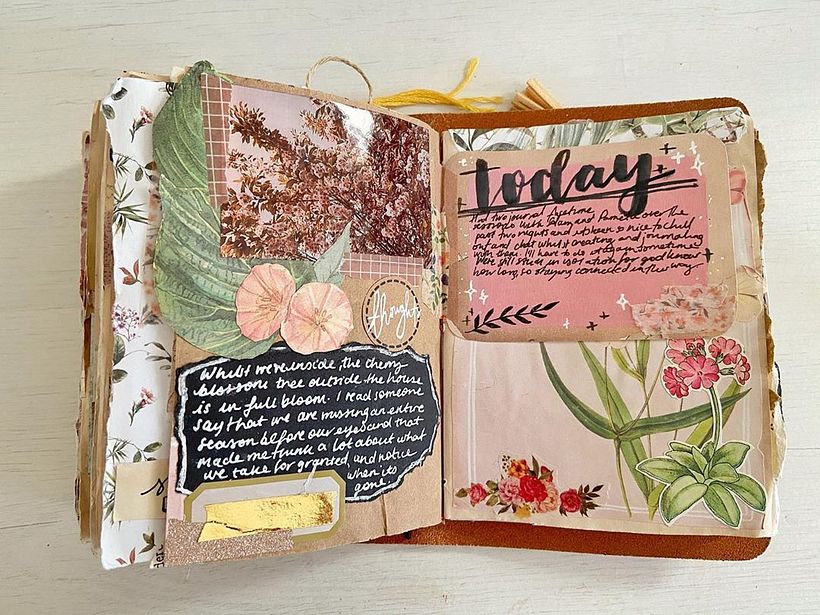 thoughts
Whilst we're inside, the cherry
blossom tree outside the house
is in full bloom. I read someone
say that we are missing an entire
season before our eyes and that
made me think a lot about what
we take for granted, and notice
when its
gone.
today
And two journal facetime
sessions with Adam and Pamela over the
past two nights and it's been so nice to chill
out and chat whilst creating and journaling
with them. I'll have to do it again sometime!
We're still stuck in isolation for good know
how long, so staying connected in this way.